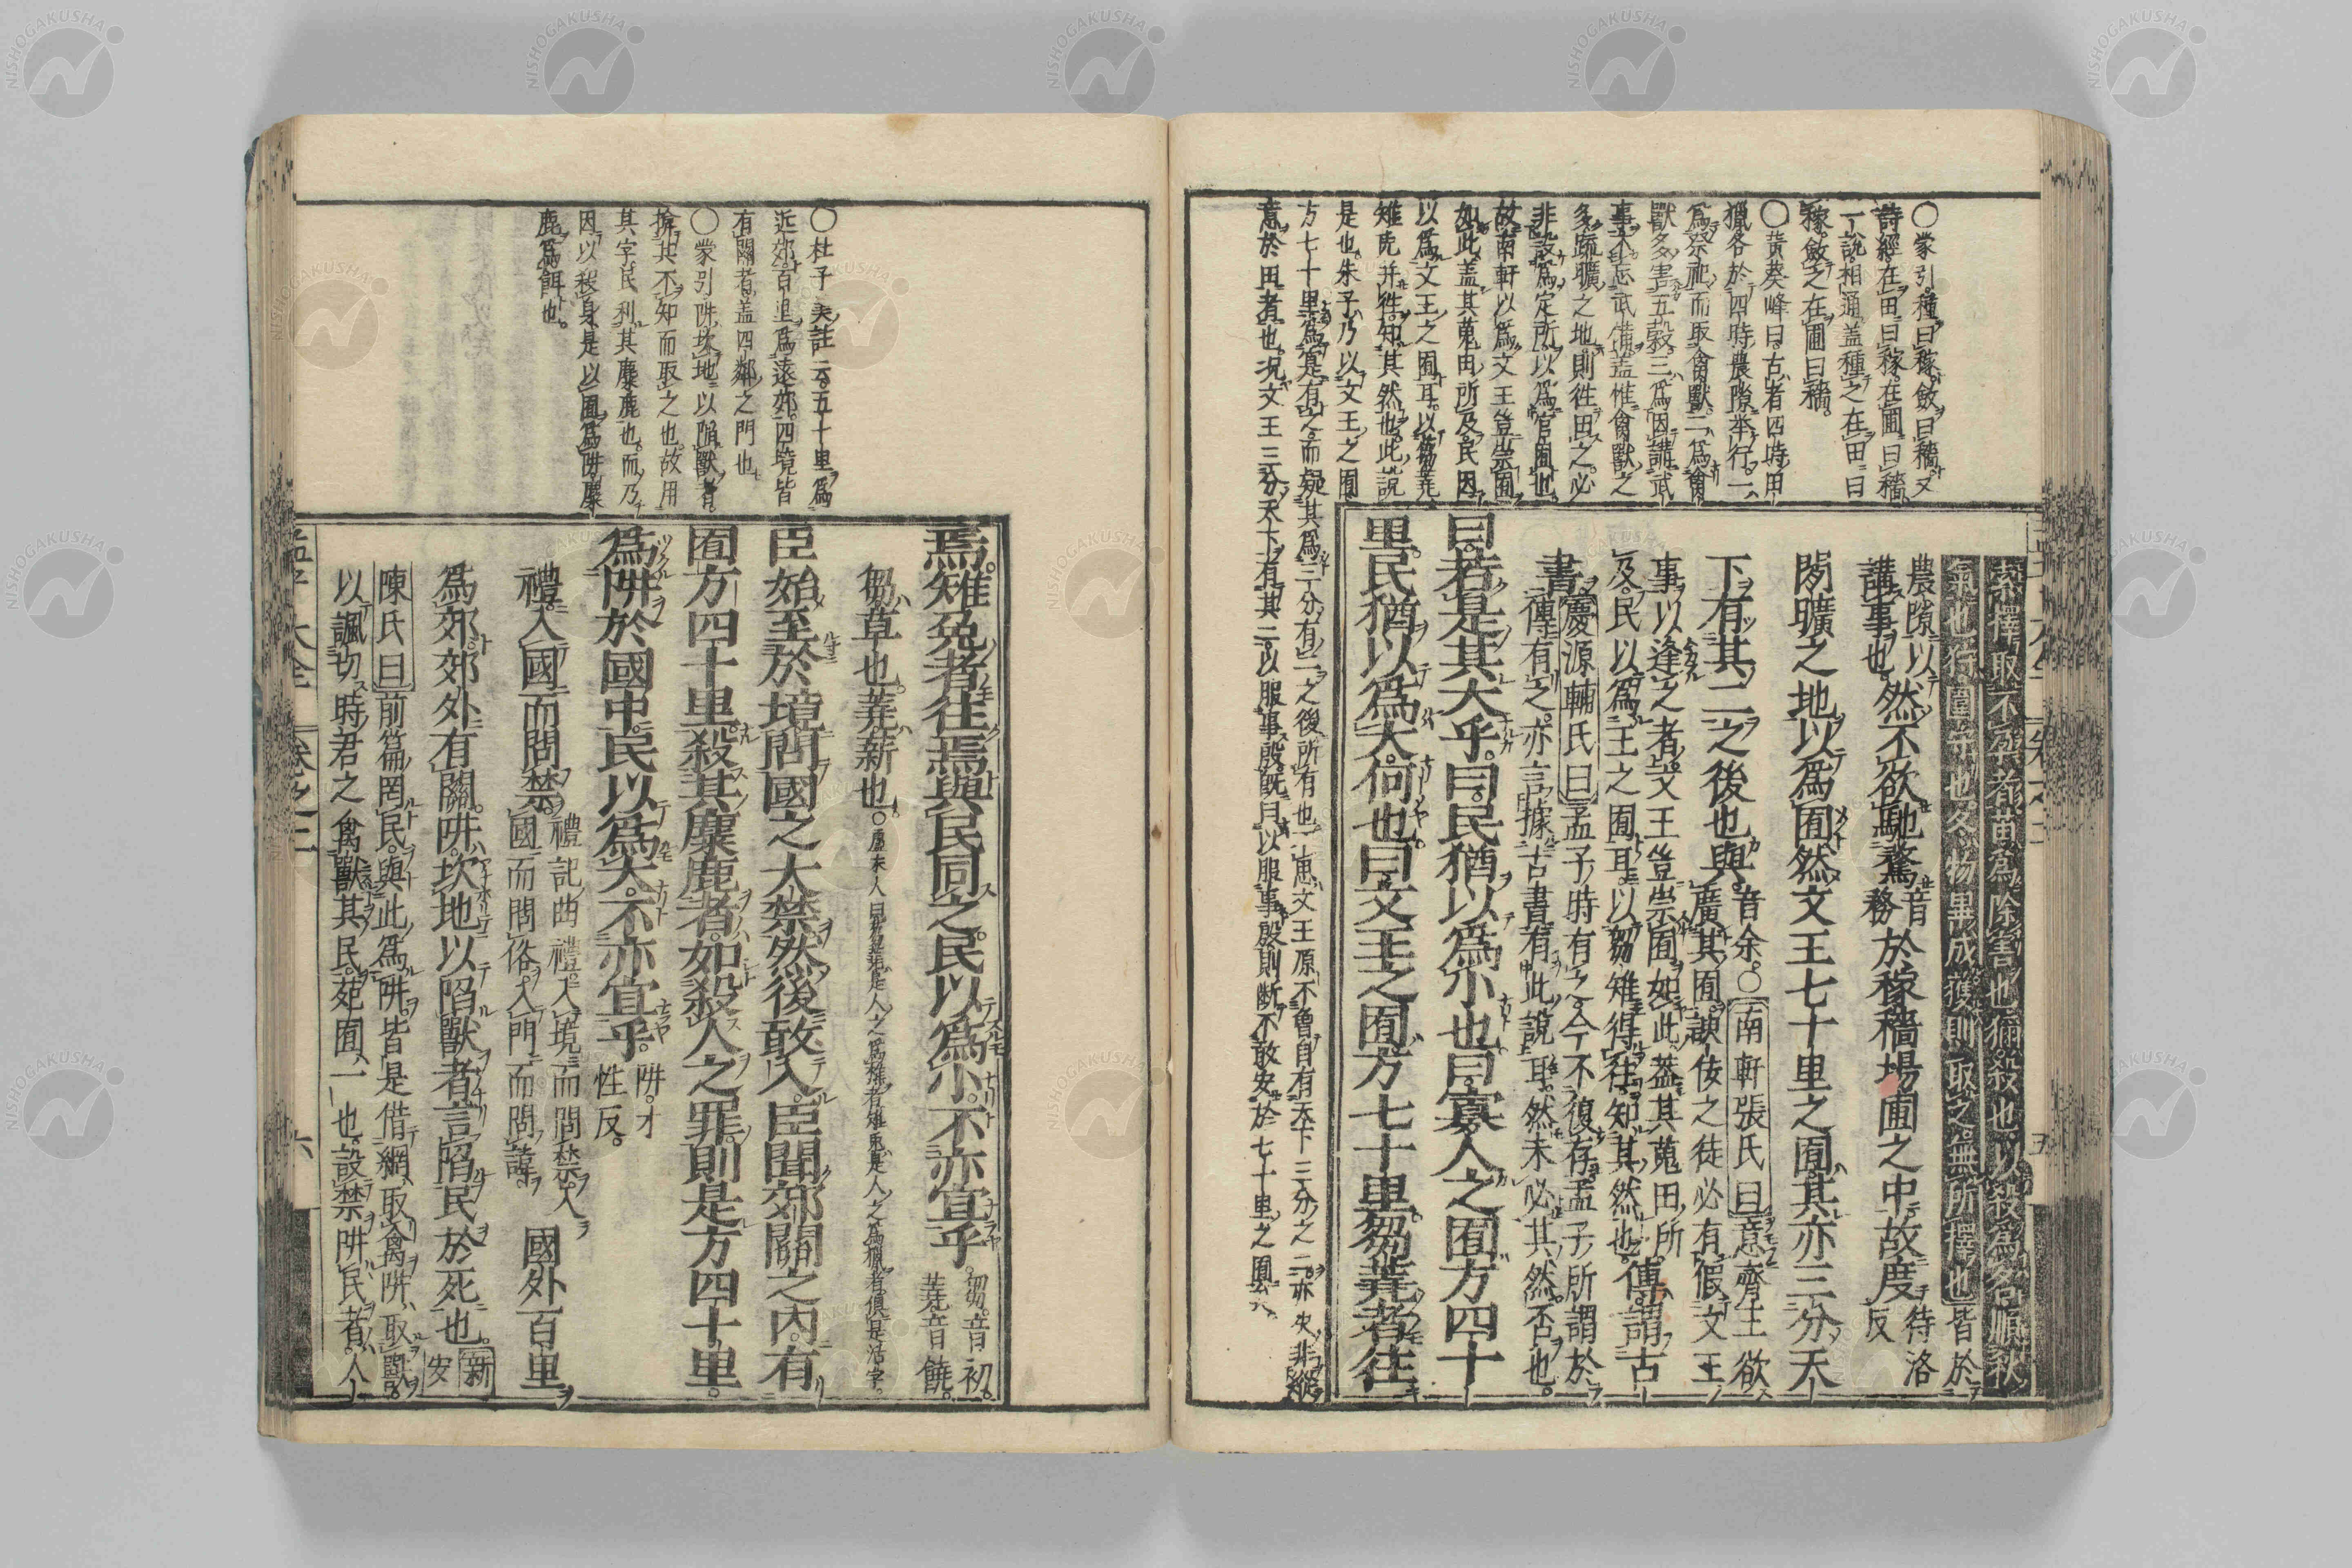 ○蒙引。種曰稼。斂曰穡。又
詩經。在田曰稼。在圃曰穡
一說。相通。蓋種之在田曰
稼。斂之在圃曰穡。
○黃葵峰曰。古者四時田
獵各於四時農隙舉行。一
爲祭祀而取禽獸。二爲禽
獸多害五穀。三爲因講武
事不忘武備。蓋惟禽獸之
多。䟽曠之地則徃田之。必
非設爲定所。以爲官囿也。
故南軒以爲文王豈崇囿
如此。蓋其蒐田所及。民因
以爲文王之囿耳。以芻蕘
雉兎并徃。知其然也。此說
是也。朱子乃以文王之囿
方七十里爲寔有之。而疑其爲三分有二之後所有也。
意於田者也。况文王三分天下有其二。以服事殷。旣曰以服事殷。則斷不敢安於七十里之囿
氣也。行圍守地。冬物畢成。獲則取之。無所擇也。皆於
農隙以講事也。然不欲馳騖音務於稼穡場圃之中。故度待洛反
閑曠之地以爲囿。然文王七十里之囿。其亦三分天
下有其二之後也與。音余。○南軒張氏曰。意齊王欲廣其囿。諛佞之徒必有假文王
事以逢之者。文王豈崇囿如此。蓋其蒐田所及。民以爲王之囿耳。以芻雉得徃。知其然也。傳謂古
書。慶源輔氏曰。孟子時有之。今不復存。孟子所謂於傳有之。亦言據古書有此說耳。然未必其然否也。
曰。若是其大乎。曰。民猶以爲小也。曰。寡人之囿方四十
里。民猶以爲大。何也。曰。文王之囿方七十里。芻蕘者往
○杜子美註云。五十里爲
近郊。百里爲遠郊。四境皆
有關者。蓋四鄰之門也
○蒙引。阱坎地以陷獸者。
掩其不知而取之也。故用
其字。民利其麋鹿也。而乃
因以殺身。是以囿爲阱。麋
鹿爲餌也。
焉。雉兔者往焉。與民同之。民以爲小。不亦宜乎。芻。音初。蕘音饒。
芻草也。蕘薪也。
臣始至於境。問國之大禁。然後敢入。臣聞郊關之內。有
囿方四十里。殺其麋鹿者。如殺人之罪。則是方四十里。
爲阱於國中。民以爲大。不亦宜乎。阱。才性反。
禮。入國而問禁。禮記曲禮。入境而問禁。入國而問俗。入門而問諱。國外百里
爲郊。郊外有關。阱。坎地以陷獸者。言陷民於死也。新安
陳氏曰。前篇罔民。與此爲阱。皆是借網取禽。阱取獸。
以諷切時君之禽獸其民。苑囿一也。設禁阱民者。人
孟子大全
卷之二
六